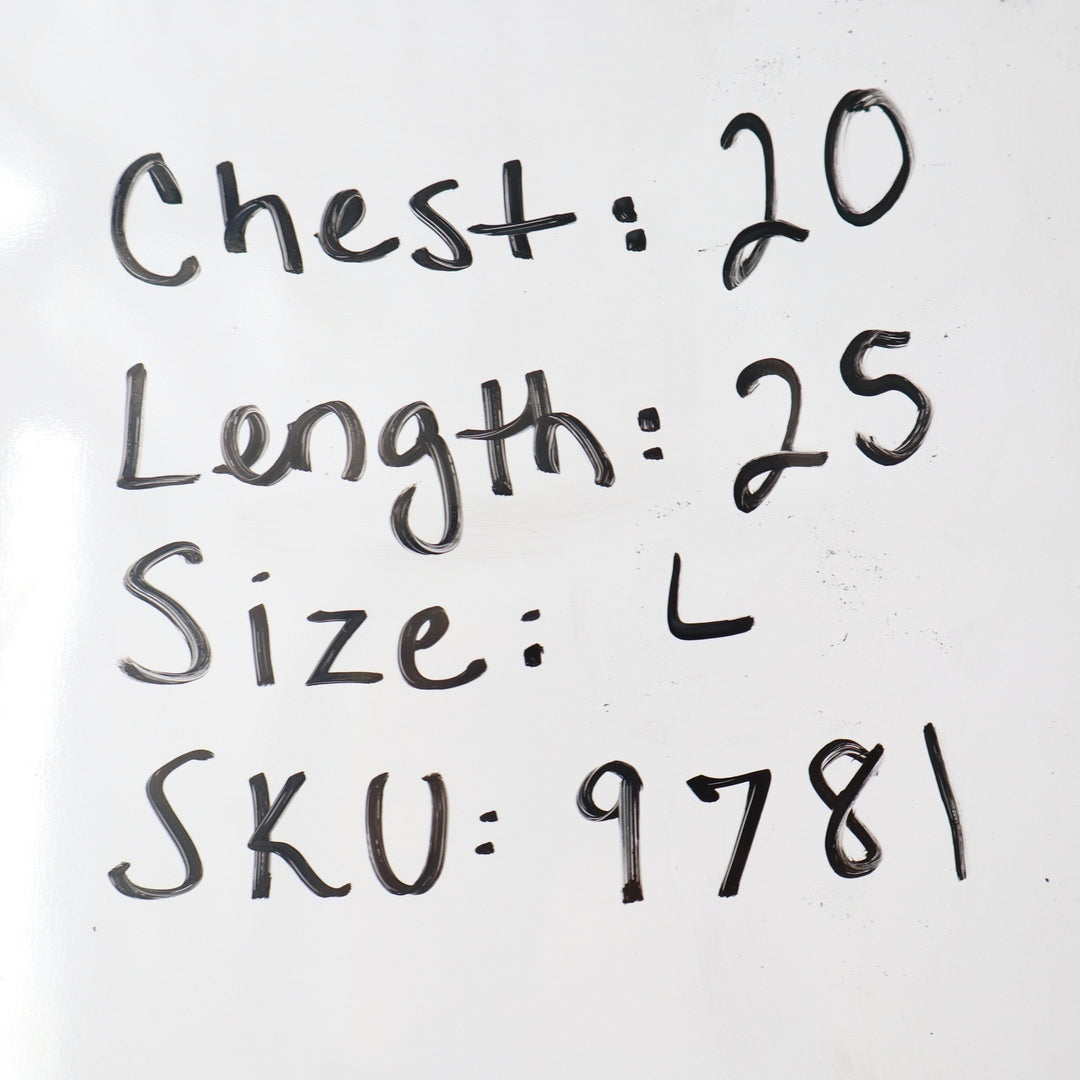 Chest: 20
Length: 25
Size: L
SKU: 9781